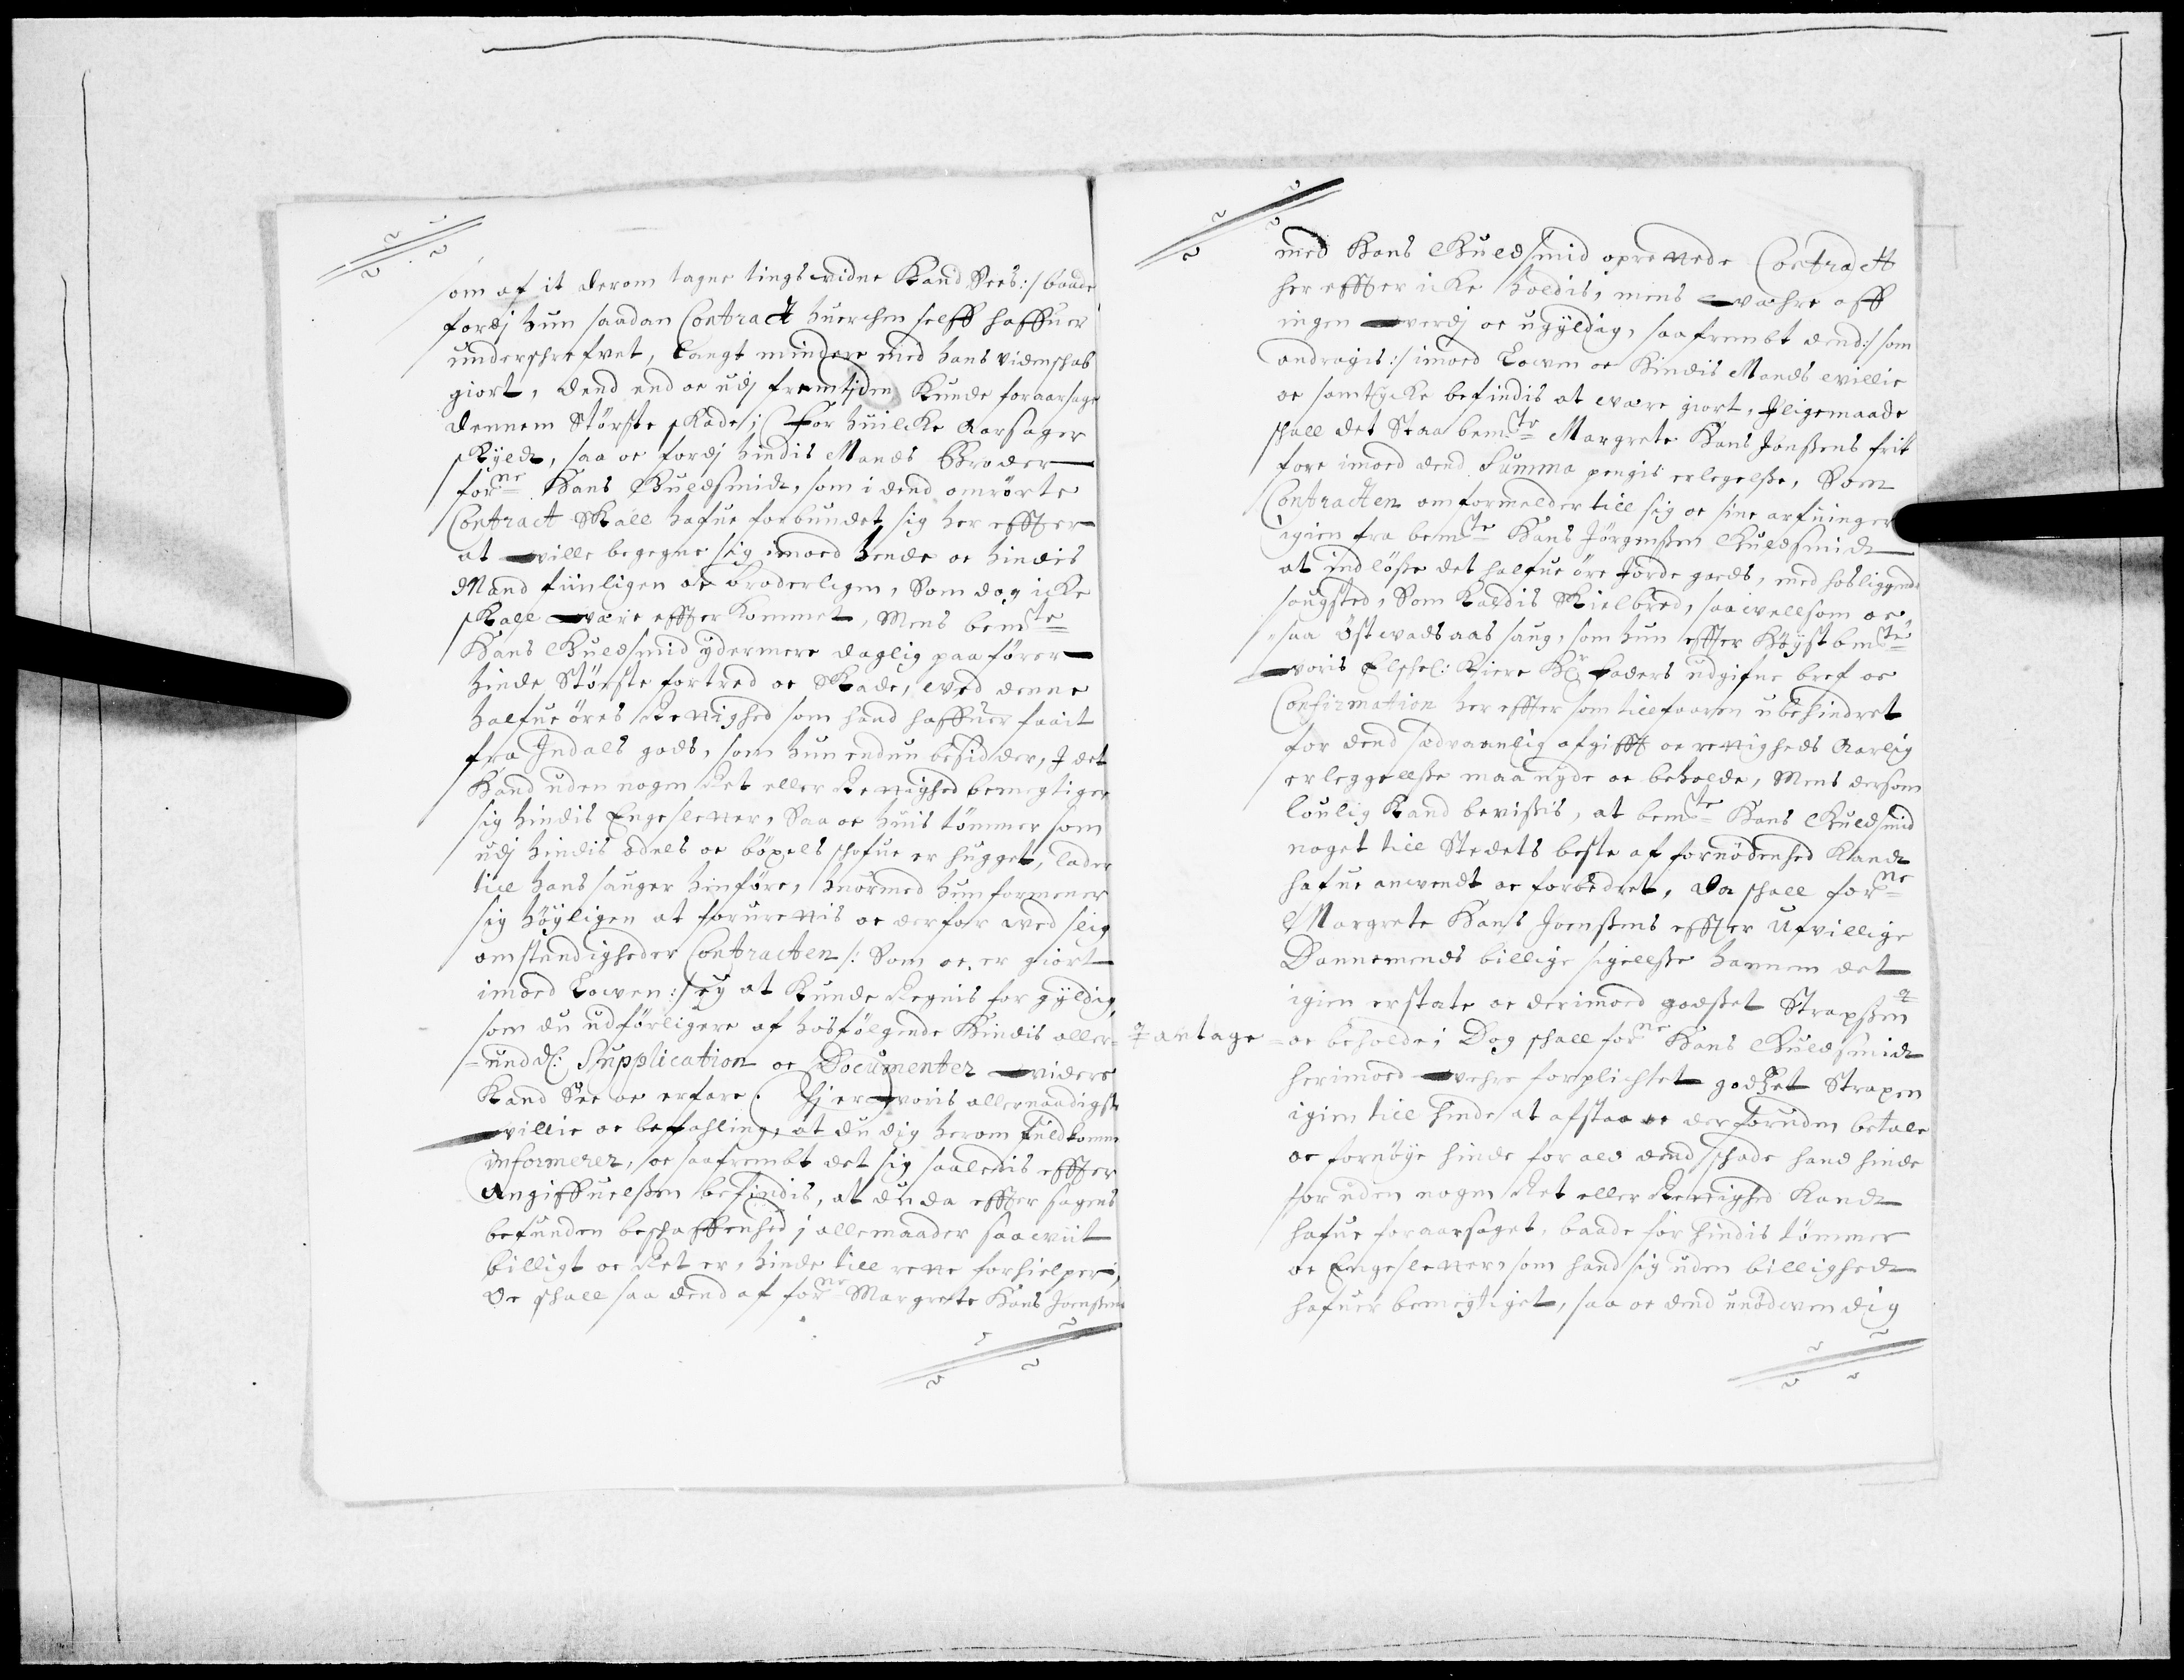 som af it derom tagne tings vidne Kand Sees:/ baade
fordj hun saadan Contract huerchen selff haffuer
underschrefvet, langt mindere med hans videnschab
giort, dend end oc udj fremtjden Kunde foraarsage
dennem Störste skade; For huilcke Aarsager
skyldt, saa oc fordj hindis Mands Broder
forne Hans Guldsmidt, som i dend omrörte
Contract Skall hafue forbundet sig her effter
at ville begegne sig imoed hende oc hindis
Mand fiinligen oc broderligen, Som dog icke
skall være effterkommet, Mens bemte
Hans Guldsmid ydermere daglig paaförer
hinde Störste fortred oc Skade, ved denne
halfue öres Rettighed som hand haffuer faait
fra Indals gods, som hun endnu besidder, I det
Hand uden nogen Ret eller Rettighed bemegtiger
sig hindis Engesletter, Saa oc huis tömmer som
udj hindis odels oc böxels schofue er hugget, lader
till hans sauger henföre, huormed hun formener
sig höyligen at forurettis oc derfor ved slig
omstendigheder Contracten /: Som oc er giort
imoed Lowen:/ ey at Kunde Regnis for gyldig,
som du udförligere af hosfölgende Hindis aller-
=undd: Supplication oc Documenter videre
Kand See oc erfare. Thj er voris allernaadigste
villie oc befahling, at du dig herom fuldkommen
informerer, oc saafrembt det sig saaledis effter
Angiffuelssen befindis, at du da effter sagens
befunden beschaffenhed j allemaader saawiit
billigt oc Ret er, hinde till rette forhielper,
Oc schall saa dend af forne Margrete Hans Joenssens
med Hans Guldsmid oprettede Contractt
her effter icke holdis, mens vaehre aff
ingen verdj oc ugyldig, saafrembt dend:/ som
andragis:/ imoed Lowen oc Hindis Mands villie
oc samtycke befindis at være giort, Iligemaade
schall det Staa bemte Margrete Hans Jonssens frit
fore imoed dend Summa pengis erlegelsse, Som
Contracten omformelder till sig oc sine arfuinger
igien fra bemte Hans Jörgenssen Guldsmidt
at indlösse det halfue öre Jorde goeds, med hosliggende
saugsted, Som Kaldis Skielbred, saavellsom oc
saa Östvads aas saug, som hun effter Höystbemte
voris Elschel: Kiere Hr Faders udgifne bref oc
Confirmation her effter som tillforen ubehindret
for dend sædvaanlig afgifft oc rettigheds Aarlig
erleggellsse maa nyde oc beholde, Mens dersom
loulig Kand bevissis, at bemte Hans Guldsmid
noget till Stedets beste af fornödenhed Kandt
hafue anvendt oc forbedret, da schall forne
Margrete Hans Joenssens effter Ufvillige
Dannemends billige sigellsse hannem det
igien erstate oc derimoed godsset Strapssen
antage oc beholde; Dog schall forne Hans Guldsmidt
herimoed vehre forplichtet godsset Strapen
igien till hinde at afstaa oc derforuden betale
oc fornöye hinde for ald dend schade hand hinde
foruden nogen Ret eller Rettighed Kandt
hafue foraarsaget, baade for hindis tömmer
oc Engesletter, som hand sig uden billighedt
hafuer bemegtiget, saa oc dend unödvendig